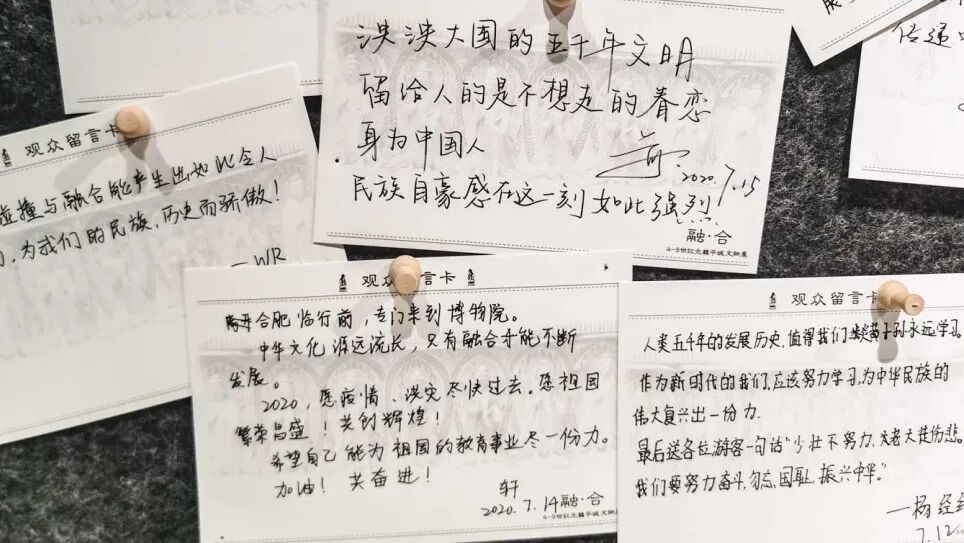 泱泱大国的五千年文明
留给人的是不想走的眷恋
身为中国人
2020.7.15
民族自豪感在这一刻如此强烈
融·合
4-5世纪北魏平城文物展
观众留言卡
碰撞与融合能产生出如此令人
为我们的民族,历史而骄傲!
—WR
观众留言卡
离开合肥临行前,专门来到博物院。
中华文化源远流长,只有融合才能不断
发展。
2020,愿疫情、洪灾尽快过去。愿祖国
繁荣昌盛!共创辉煌!
希望自己能为祖国的教育事业尽一份力。
加油!共奋进!
轩
2020.7.14
融·合
4-5世纪北魏平城文物展
观众留言卡
人类五千年的发展历史,值得我们炎黄子孙永远学习.
作为新时代的我们,应该努力学习,为中华民族的
伟大复兴出一份力.
最后送各位游客一句话"少壮不努力,老大徒伤悲。
我们要努力奋斗,勿忘国耻,振兴中华"。
—杨经
7.12
传递